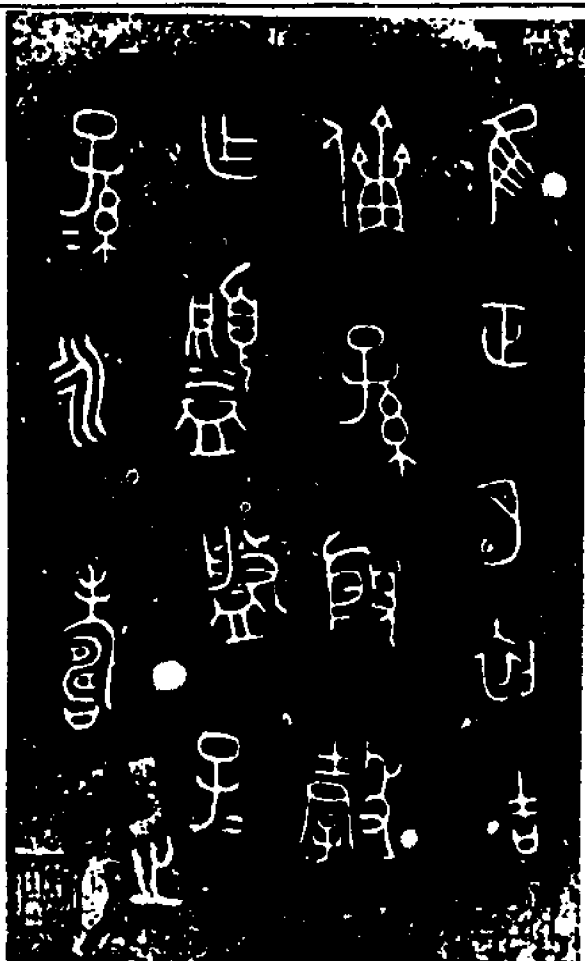 隹正月初吉
儕孫殷㝅
乍沬盤子＝
孫＝永壽之